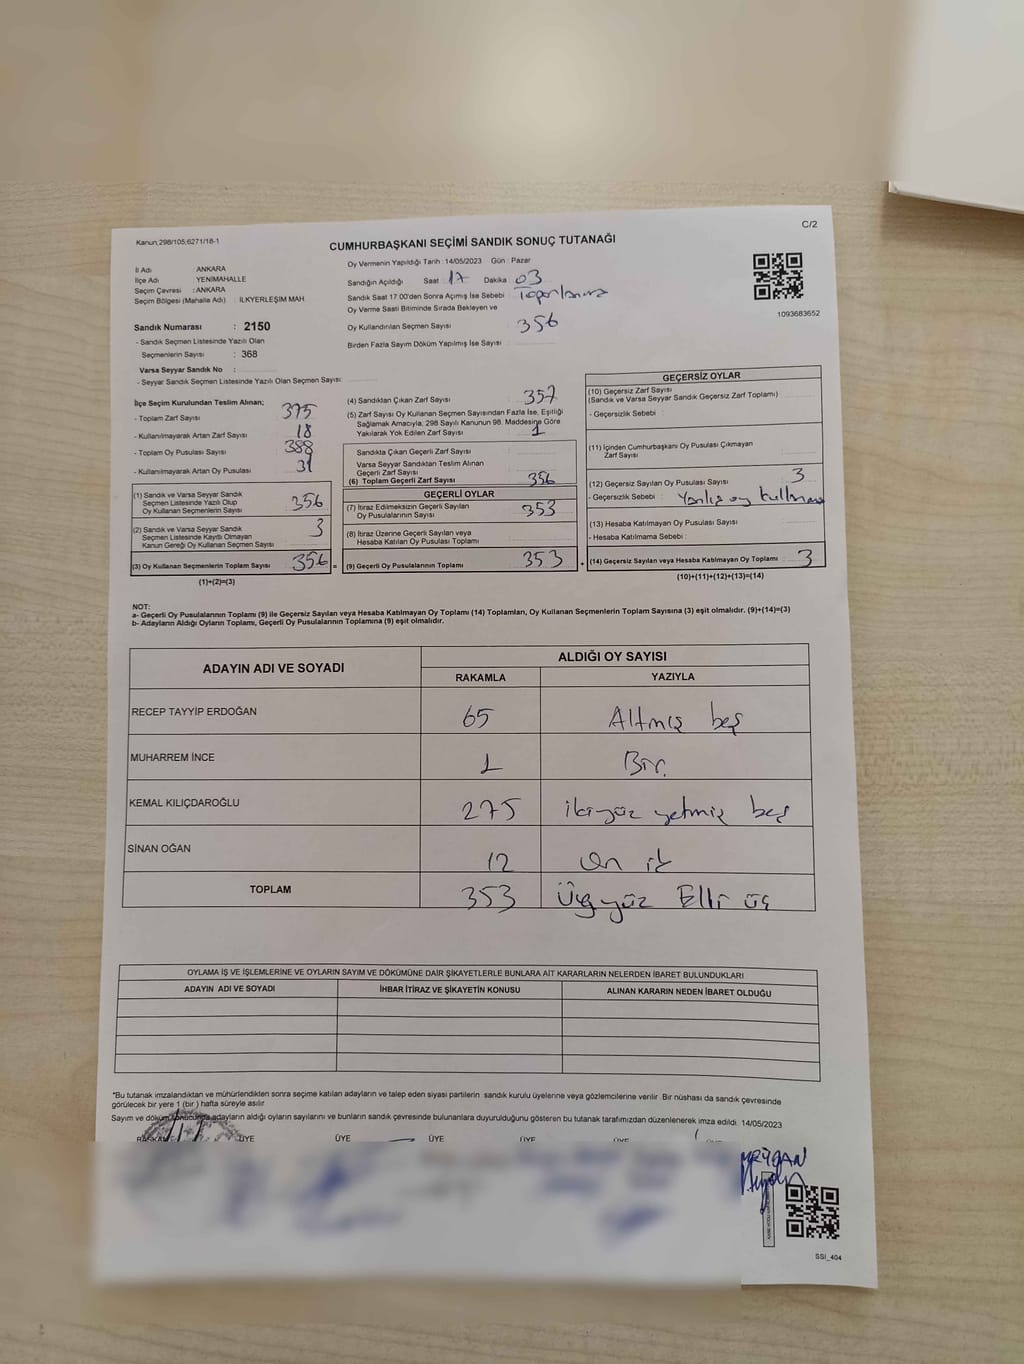 Kanun;298/105;6271/18-1
C/2
CUMHURBAŞKANI SEÇİMİ SANDIK SONUÇ TUTANAĞI
İl Adı ANKARA
İlçe Adı YENİMAHALLE
Seçim Çevresi : ANKARA
Seçim Bölgesi (Mahalle Adı) : İLKYERLEŞİM MAH.
Sandık Numarası : 2150
- Sandık Seçmen Listesinde Yazılı Olan
Seçmenlerin Sayısı : 368
Varsa Seyyar Sandık No :
- Seyyar Sandık Seçmen Listesinde Yazılı Olan Seçmen Sayısı:
Oy Vermenin Yapıldığı Tarih : 14/05/2023 Gün : Pazar
Sandığın Açıldığı Saat 17 Dakika 03
Sandık Saat 17.00'den Sonra Açımış İse Sebebi Toparlanma
Oy Verme Saati Bitiminde Sırada Bekleyen ve
Oy Kullandırılan Seçmen Sayısı 356
Birden Fazla Sayım Döküm Yapılmış İse Sayısı :
1093683652
İlçe Seçim Kurulundan Teslim Alınan;
- Toplam Zarf Sayısı 375
- Kullanılmayarak Artan Zarf Sayısı 18
- Toplam Oy Pusulası Sayısı 388
- Kullanılmayarak Artan Oy Pusulası 31
(1) Sandık ve Varsa Seyyar Sandık
Seçmen Listesinde Yazılı Olup
Oy Kullanan Seçmenlerin Sayısı 356
(2) Sandık ve Varsa Seyyar Sandık
Seçmen Listesinde Kayıtlı Olmayan
Kanun Gereği Oy Kullanan Seçmen Sayısı 3
(3) Oy Kullanan Seçmenlerin Toplam Sayısı 356 =
(1)+(2)=(3)
(4) Sandıktan Çıkan Zarf Sayısı 357
(5) Zarf Sayısı Oy Kullanan Seçmen Sayısından Fazla İse, Eşitliği
Sağlamak Amacıyla; 298 Sayılı Kanunun 98. Maddesine Göre
Yakılarak Yok Edilen Zarf Sayısı 1
Sandıkta Çıkan Geçerli Zarf Sayısı
Varsa Seyyar Sandıktan Teslim Alınan
Geçerli Zarf Sayısı
(6) Toplam Geçerli Zarf Sayısı 356
GEÇERLİ OYLAR
(7) İtiraz Edilmeksizin Geçerli Sayılan
Oy Pusulalarının Sayısı 353
(8) İtiraz Üzerine Geçerli Sayılan veya
Hesaba Katılan Oy Pusulası Toplamı
(9) Geçerli Oy Pusulalarının Toplamı 353 +
GEÇERSİZ OYLAR
(10) Geçersiz Zarf Sayısı
(Sandık ve Varsa Seyyar Sandık Geçersiz Zarf Toplamı)
- Geçersizlik Sebebi :
(11) İçinden Cumhurbaşkanı Oy Pusulası Çıkmayan
Zarf Sayısı
(12) Geçersiz Sayılan Oy Pusulası Sayısı 3
- Geçersizlik Sebebi : Yanlış oy kullanma
(13) Hesaba Katılmayan Oy Pusulası Sayısı
- Hesaba Katılmama Sebebi :
(14) Geçersiz Sayılan veya Hesaba Katılmayan Oy Toplamı 3
(10)+(11)+(12)+(13)=(14)
NOT:
a- Geçerli Oy Pusulalarının Toplamı (9) ile Geçersiz Sayılan veya Hesaba Katılmayan Oy Toplamı (14) Toplamları, Oy Kullanan Seçmenlerin Toplam Sayısına (3) eşit olmalıdır. (9)+(14)=(3)
b- Adayların Aldığı Oyların Toplamı, Geçerli Oy Pusulalarının Toplamına (9) eşit olmalıdır.
ADAYIN ADI VE SOYADI ALDIĞI OY SAYISI
RAKAMLA YAZIYLA
RECEP TAYYİP ERDOĞAN 65 Altmış beş
MUHARREM İNCE 1 Bir.
KEMAL KILIÇDAROĞLU 275 ikiyüz yetmiş beş
SİNAN OĞAN 12 On iki
TOPLAM 353 Üçyüz Elli üç
OYLAMA İŞ VE İŞLEMLERİNE VE OYLARIN SAYIM VE DÖKÜMÜNE DAİR ŞİKAYETLERLE BUNLARA AİT KARARLARIN NELERDEN İBARET BULUNDUKLARI
ADAYIN ADI VE SOYADI İHBAR İTİRAZ VE ŞİKAYETİN KONUSU ALINAN KARARIN NEDEN İBARET OLDUĞU
*Bu tutanak imzalandıktan ve mühürlendikten sonra seçime katılan adayların ve talep eden siyasi partilerin sandık kurulu üyelerine veya gözlemcilerine verilir. Bir nüshası da sandık çevresinde
görülecek bir yere 1 (bir ) hafta süreyle asılır
Sayım ve döküm sonucunda adayların aldığı oyların sayılarını ve bunların sandık çevresinde bulunanlara duyurulduğunu gösteren bu tutanak tarafımızdan düzenlenerek imza edildi. 14/05/2023
BAŞKAN ÜYE ÜYE ÜYE ÜYE ÜYE
SSI_404